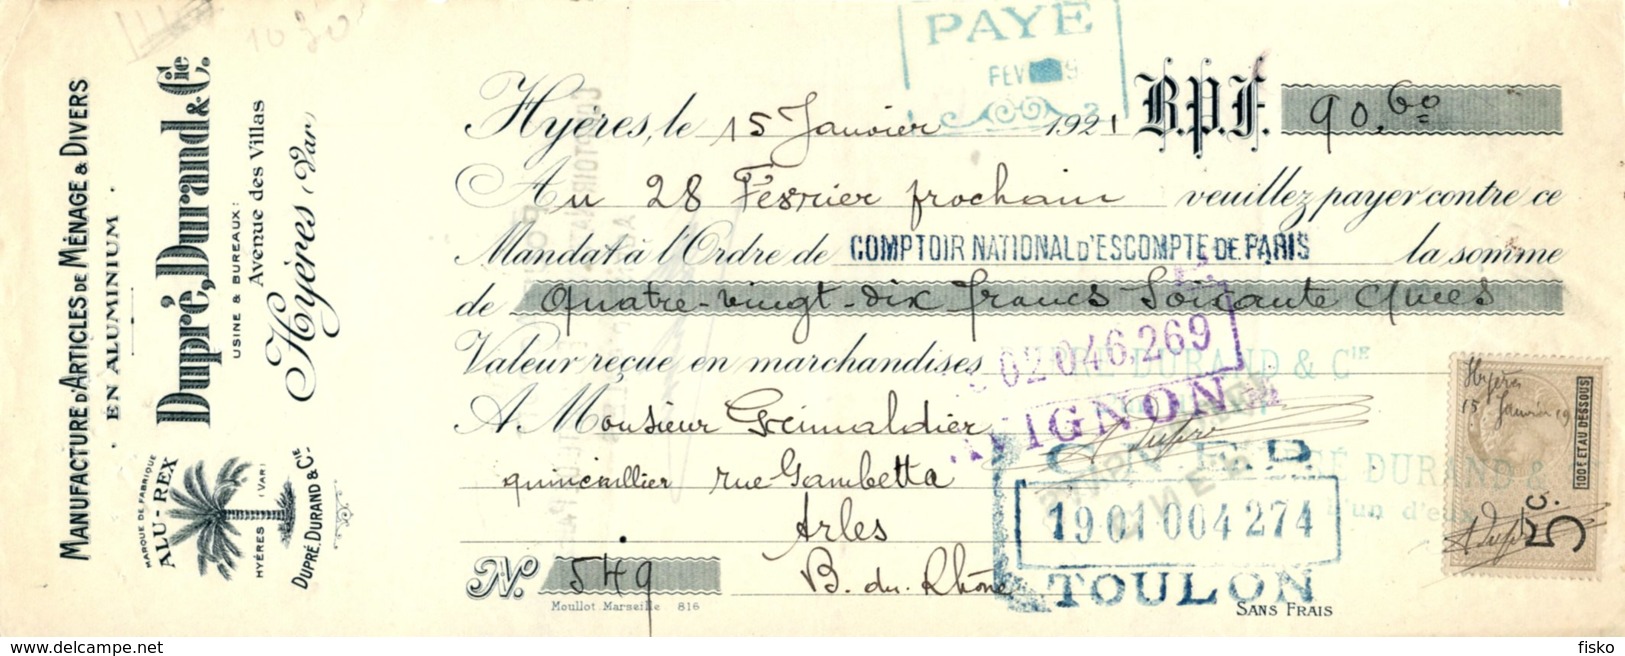 MANUFACTURE D'ARTICLES DE MÉNAGE & DIVERS
· EN ALUMINIUM ·
Dupré, Durand & Cie
USINE & BUREAUX:
Avenue des Villas
Hyères (Var)
MARQUE DE FABRIQUE
ALU-REX
HYÈRES (VAR)
DUPRÉ, DURAND & CIE
1030
PAYÉ
FEV
Hyères, le 15 Janvier 1921 B.P.F. 90.60
Au 28 Février prochain veuillez payer contre ce
Mandat à l'Ordre de COMPTOIR NATIONAL D'ESCOMPTE DE PARIS la somme
de quatre-vingt-dix francs soixante cmes
Valeur reçue en marchandises
02046.269
DURAND & CIE
AVIGNON
A Monsieur Grimaldier
quincaillier rue Gambetta
Arles
B. du Rhône
No. 549
Moullot Marseille 816
C.N.E.P.
1901004274
TOULON
DURAND &
l'un d'eux
SANS FRAIS
Hyères
15 Janvier 19
100F ET AU DESSOUS
5c.
delcampe.net
fisko